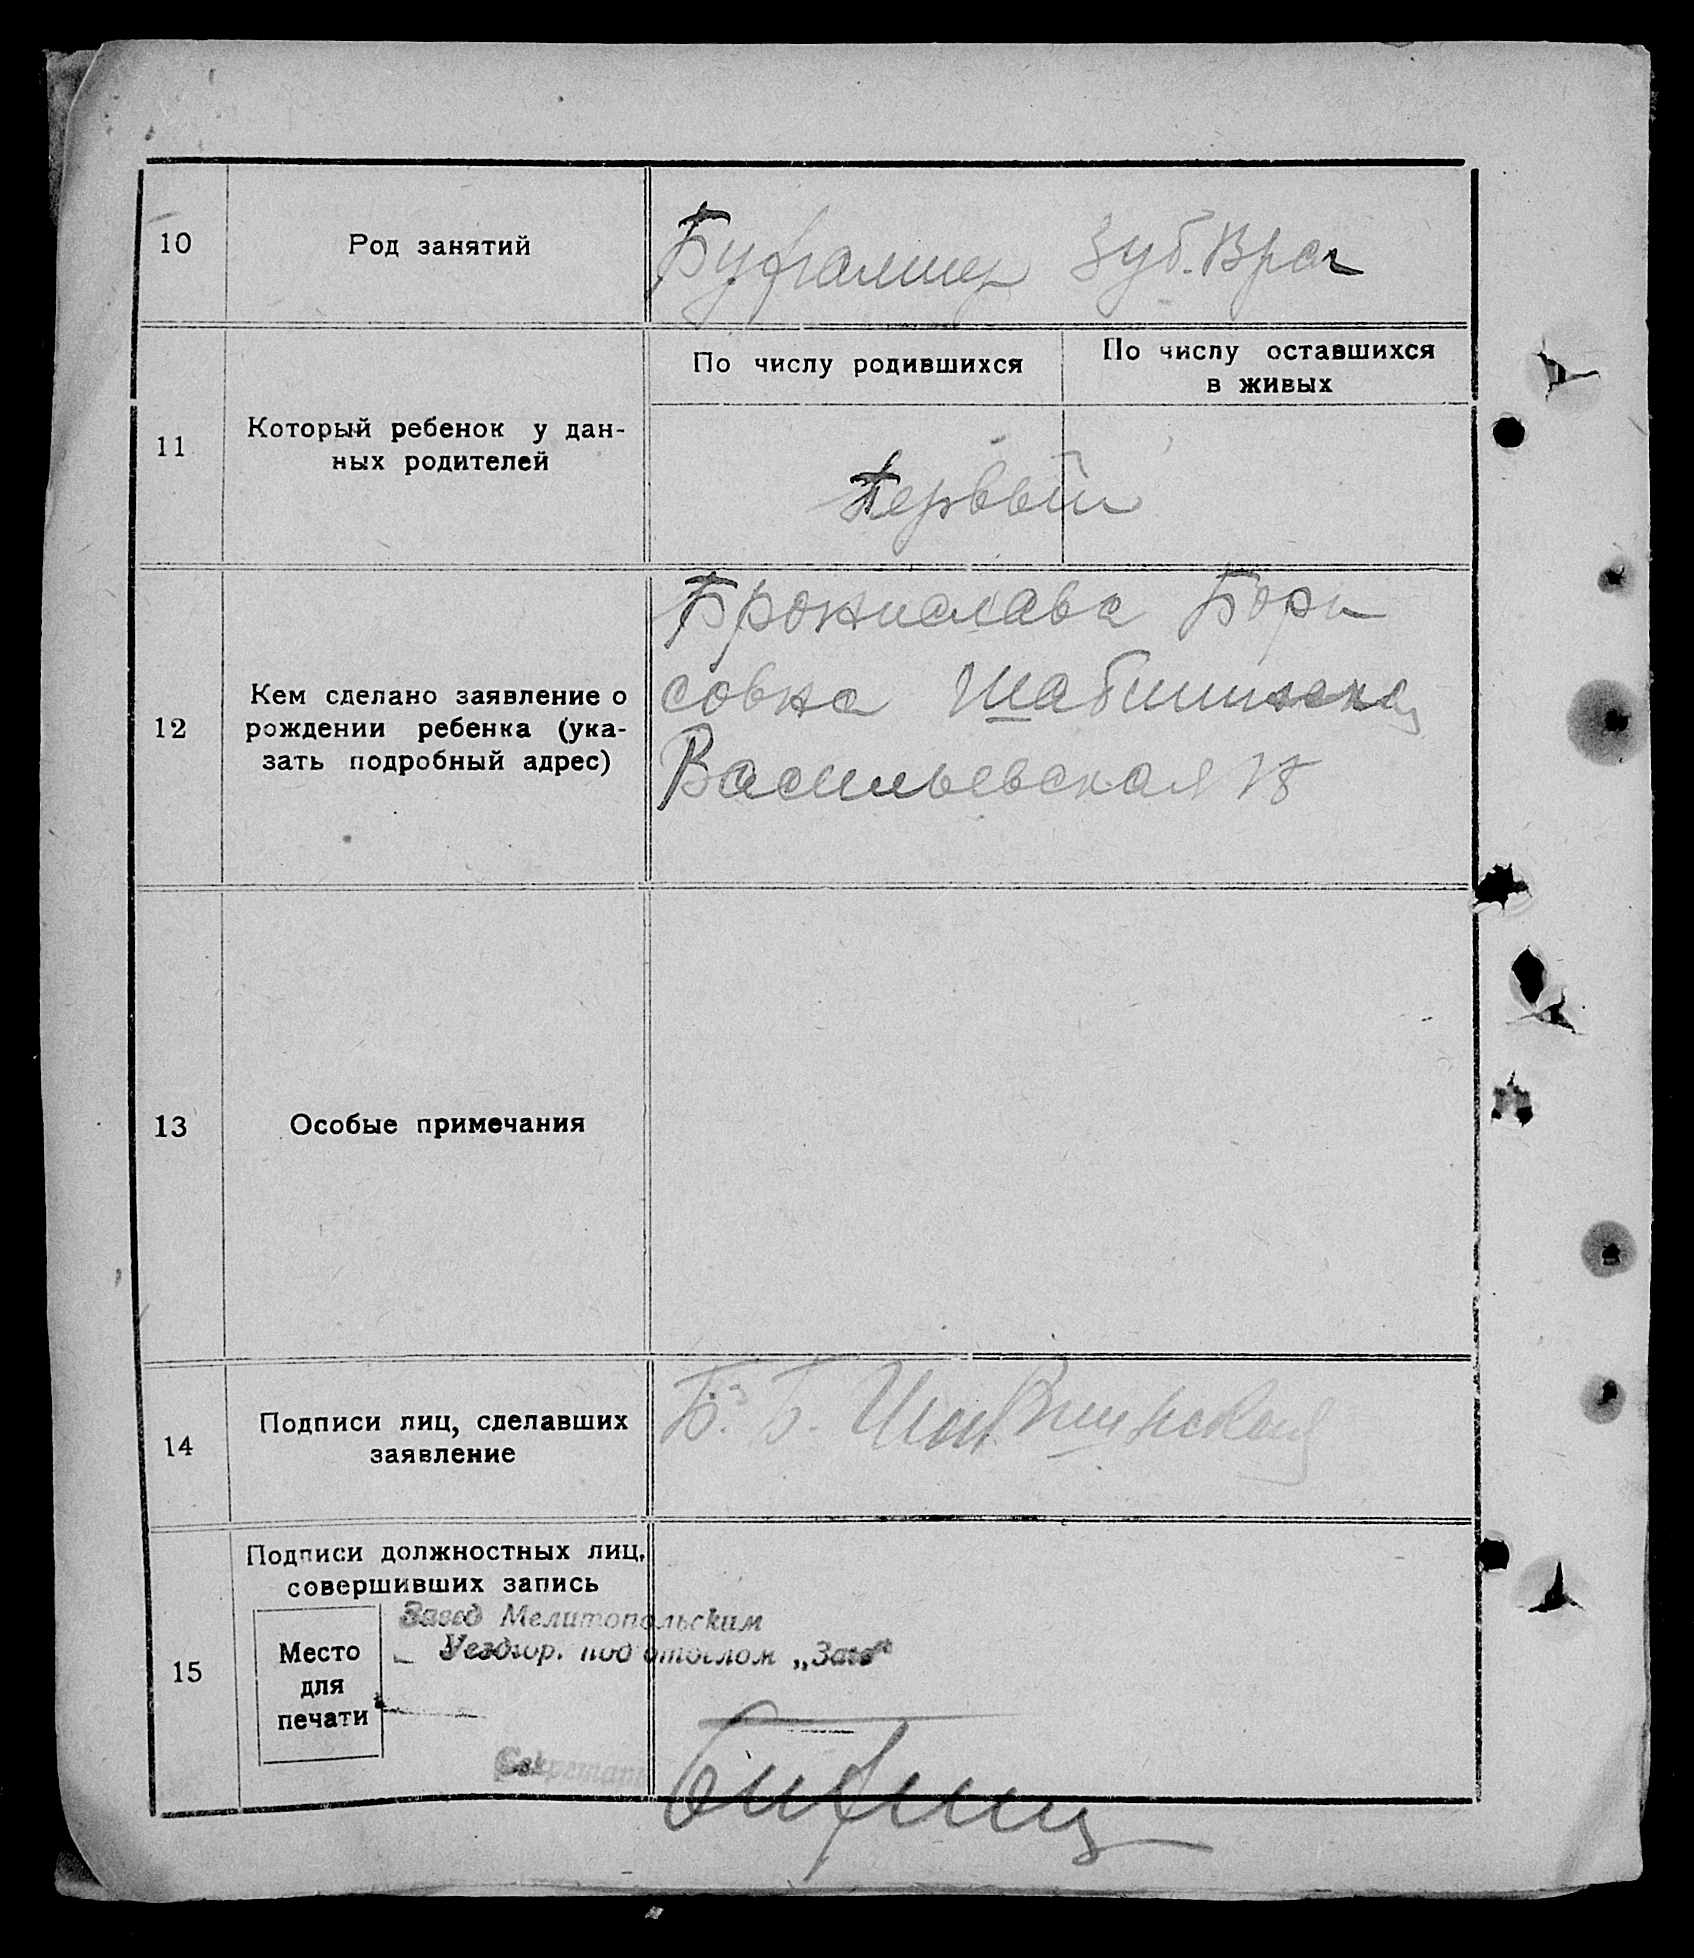 10
Род занятий
Бухгалтер Зуб. Врач
11
Который ребенок у дан-
ных родителей
По числу родившихся
По числу оставшихся
в живых
Первый
12
Кем сделано заявление о
рождении ребенка (ука-
зать подробный адрес)
Бронислава Бори
совна
Васильевская 18
13
Особые примечания
14
Подписи лиц, сделавших
заявление
Б. Б.
15
Подписи должностных лиц,
совершивших запись
Место
для
печати
Завед Мелитопольским
Уездгор. под отделом „Загс“
Секретарь